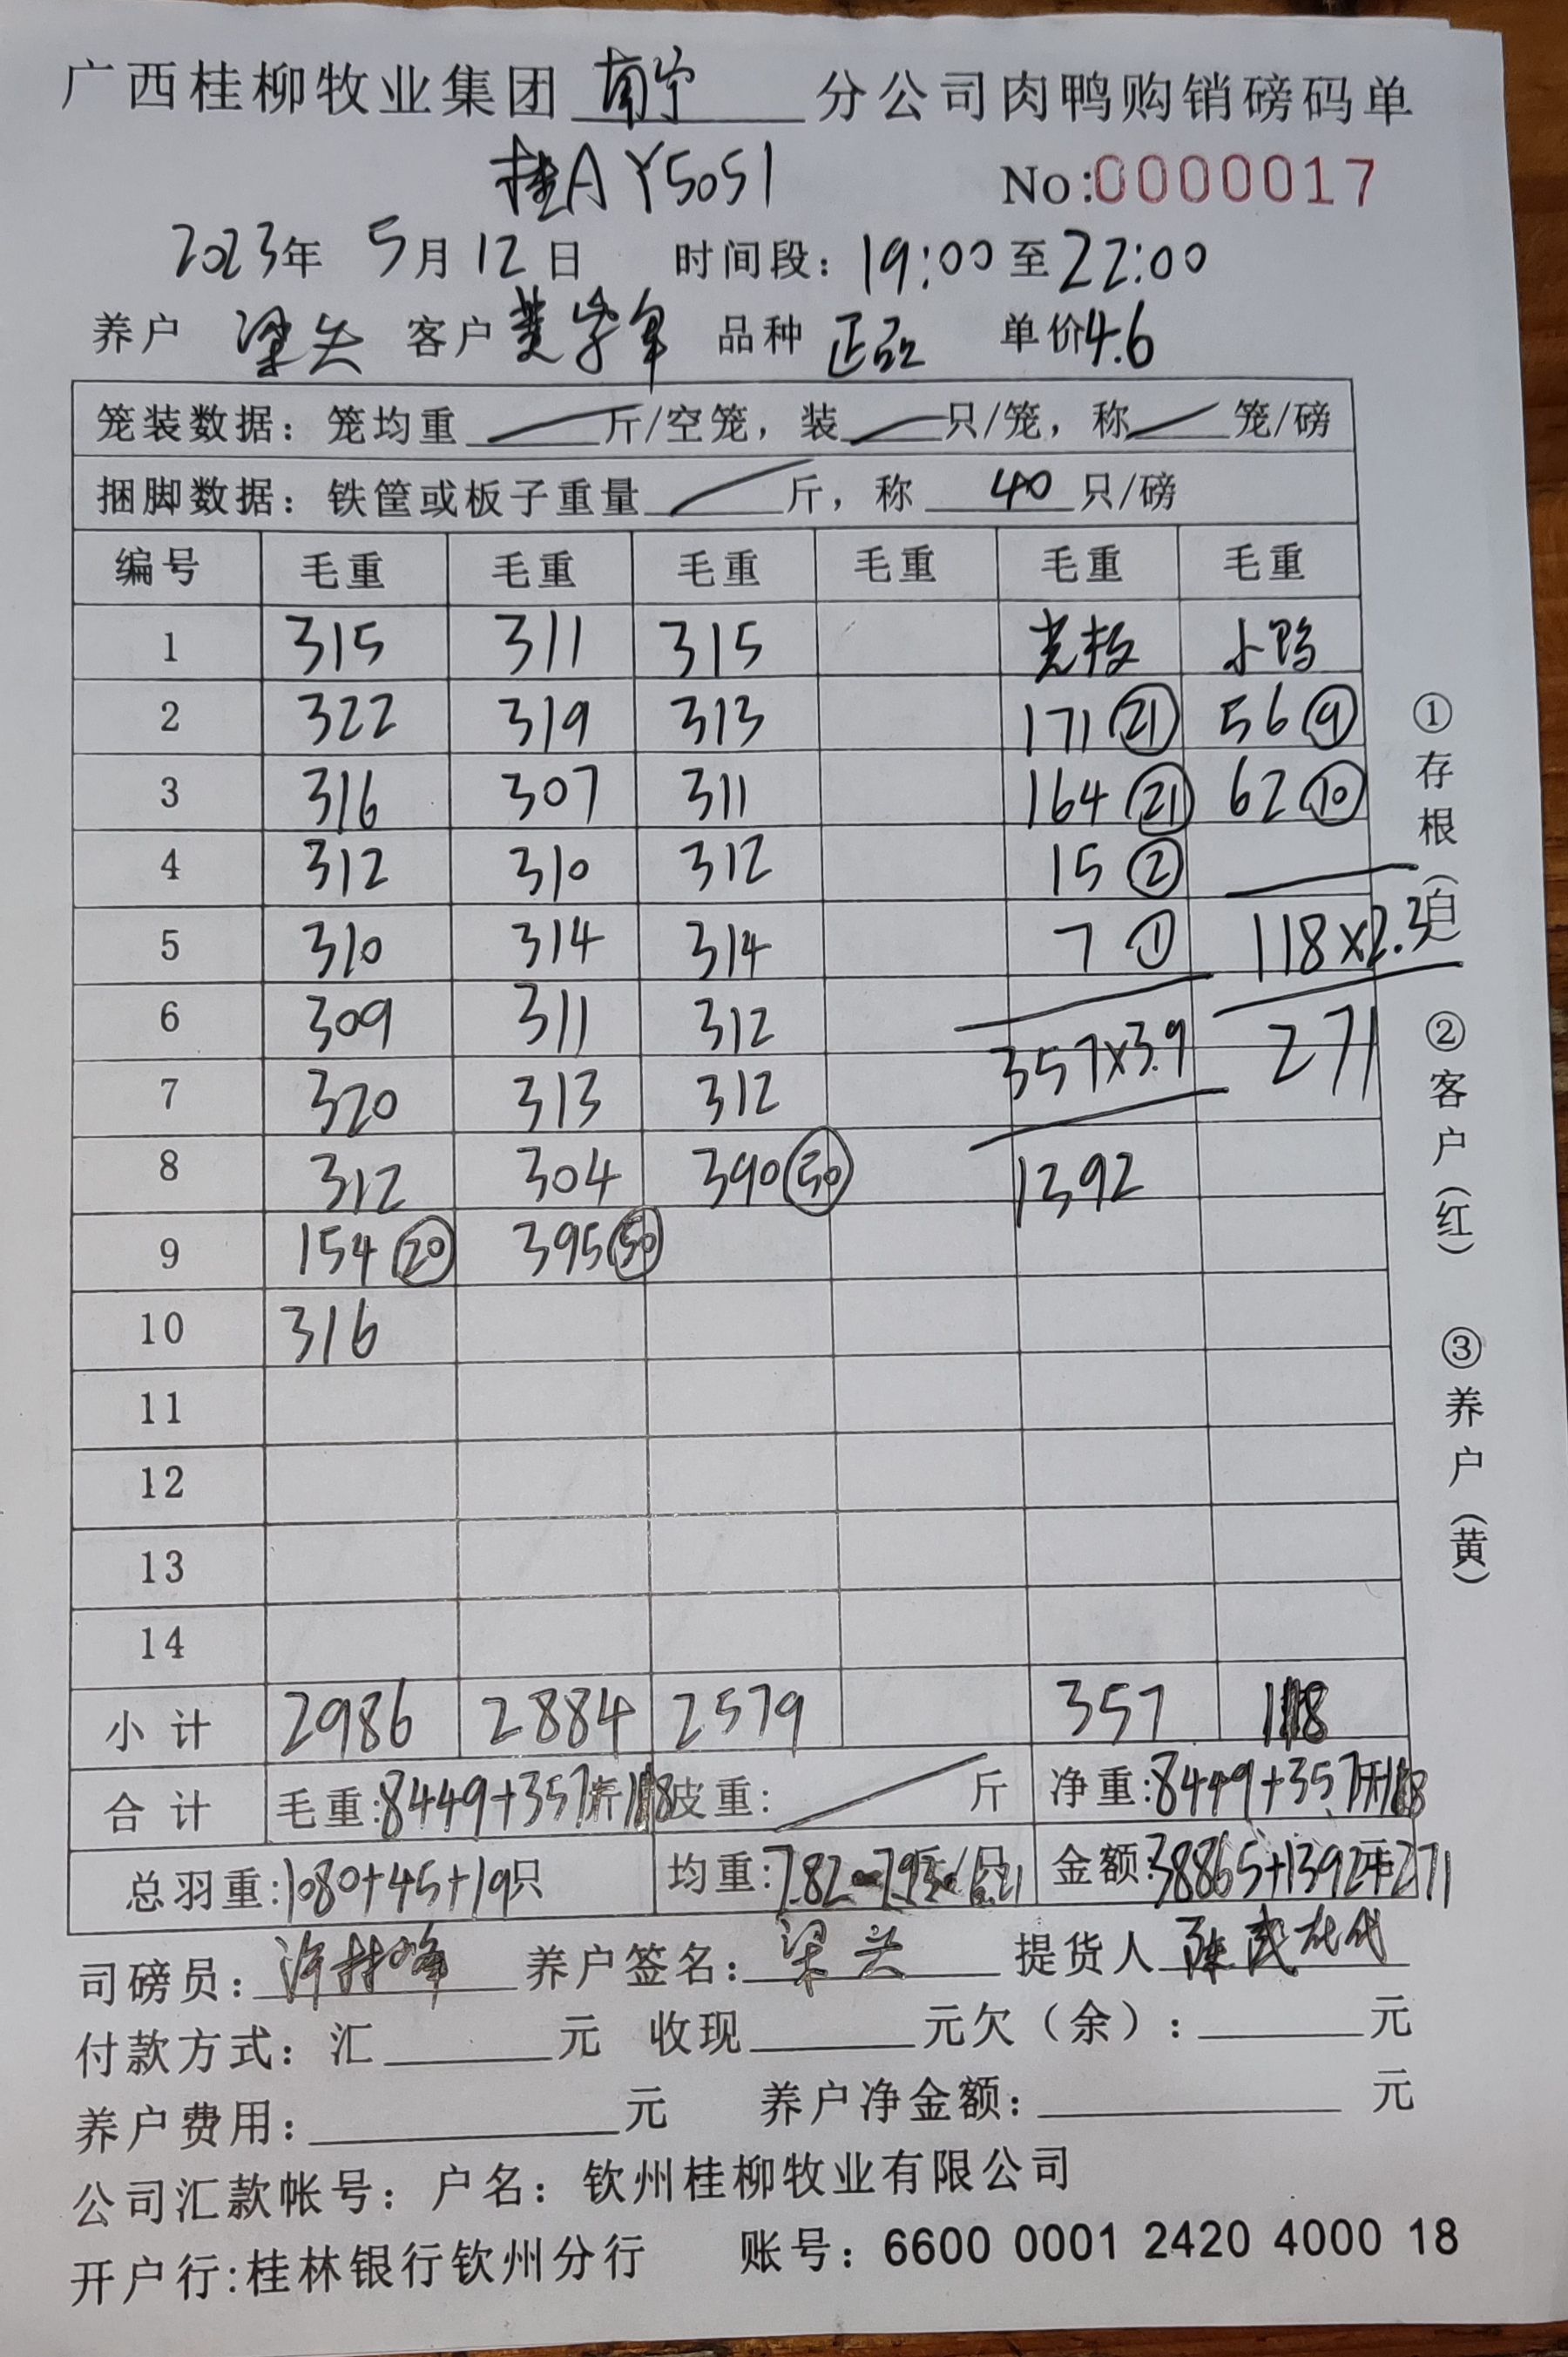 广西桂柳牧业集团 南宁 分公司肉鸭购销磅码单
桂A Y5051 No:0000017
2023年 5月12日 时间段：19:00至22:00
养户 梁 客户 黄 品种 正品 单价4.6
笼装数据：笼均重 斤/空笼，装 只/笼，称 笼/磅
捆脚数据：铁筐或板子重量 斤，称 40 只/磅
编号 毛重 毛重 毛重 毛重 毛重 毛重
1 315 311 315 光板 小鸭
2 322 319 313 171㉑ 56⑨
3 316 307 311 164㉑ 62⑩
4 312 310 312 15②
5 310 314 314 7① 118×2.3
6 309 311 312 357×3.9 271
7 320 313 312
8 312 304 390㊿ 1392
9 154⑳ 395㊿
10 316
11
12
13
14
小计 2986 2884 2579 357 118
合计 毛重:8449+357斤+118 皮重: 斤 净重:8449+357斤+118
总羽重:1080+45+19只 均重:7.82 7.93 6.21 金额:38865+1392元+271
司磅员： 养户签名：梁 提货人
付款方式：汇 元 收现 元欠（余）： 元
养户费用： 元 养户净金额： 元
公司汇款帐号：户名：钦州桂柳牧业有限公司
开户行:桂林银行钦州分行 账号：6600 0001 2420 4000 18
①存根（白） ②客户（红） ③养户（黄）